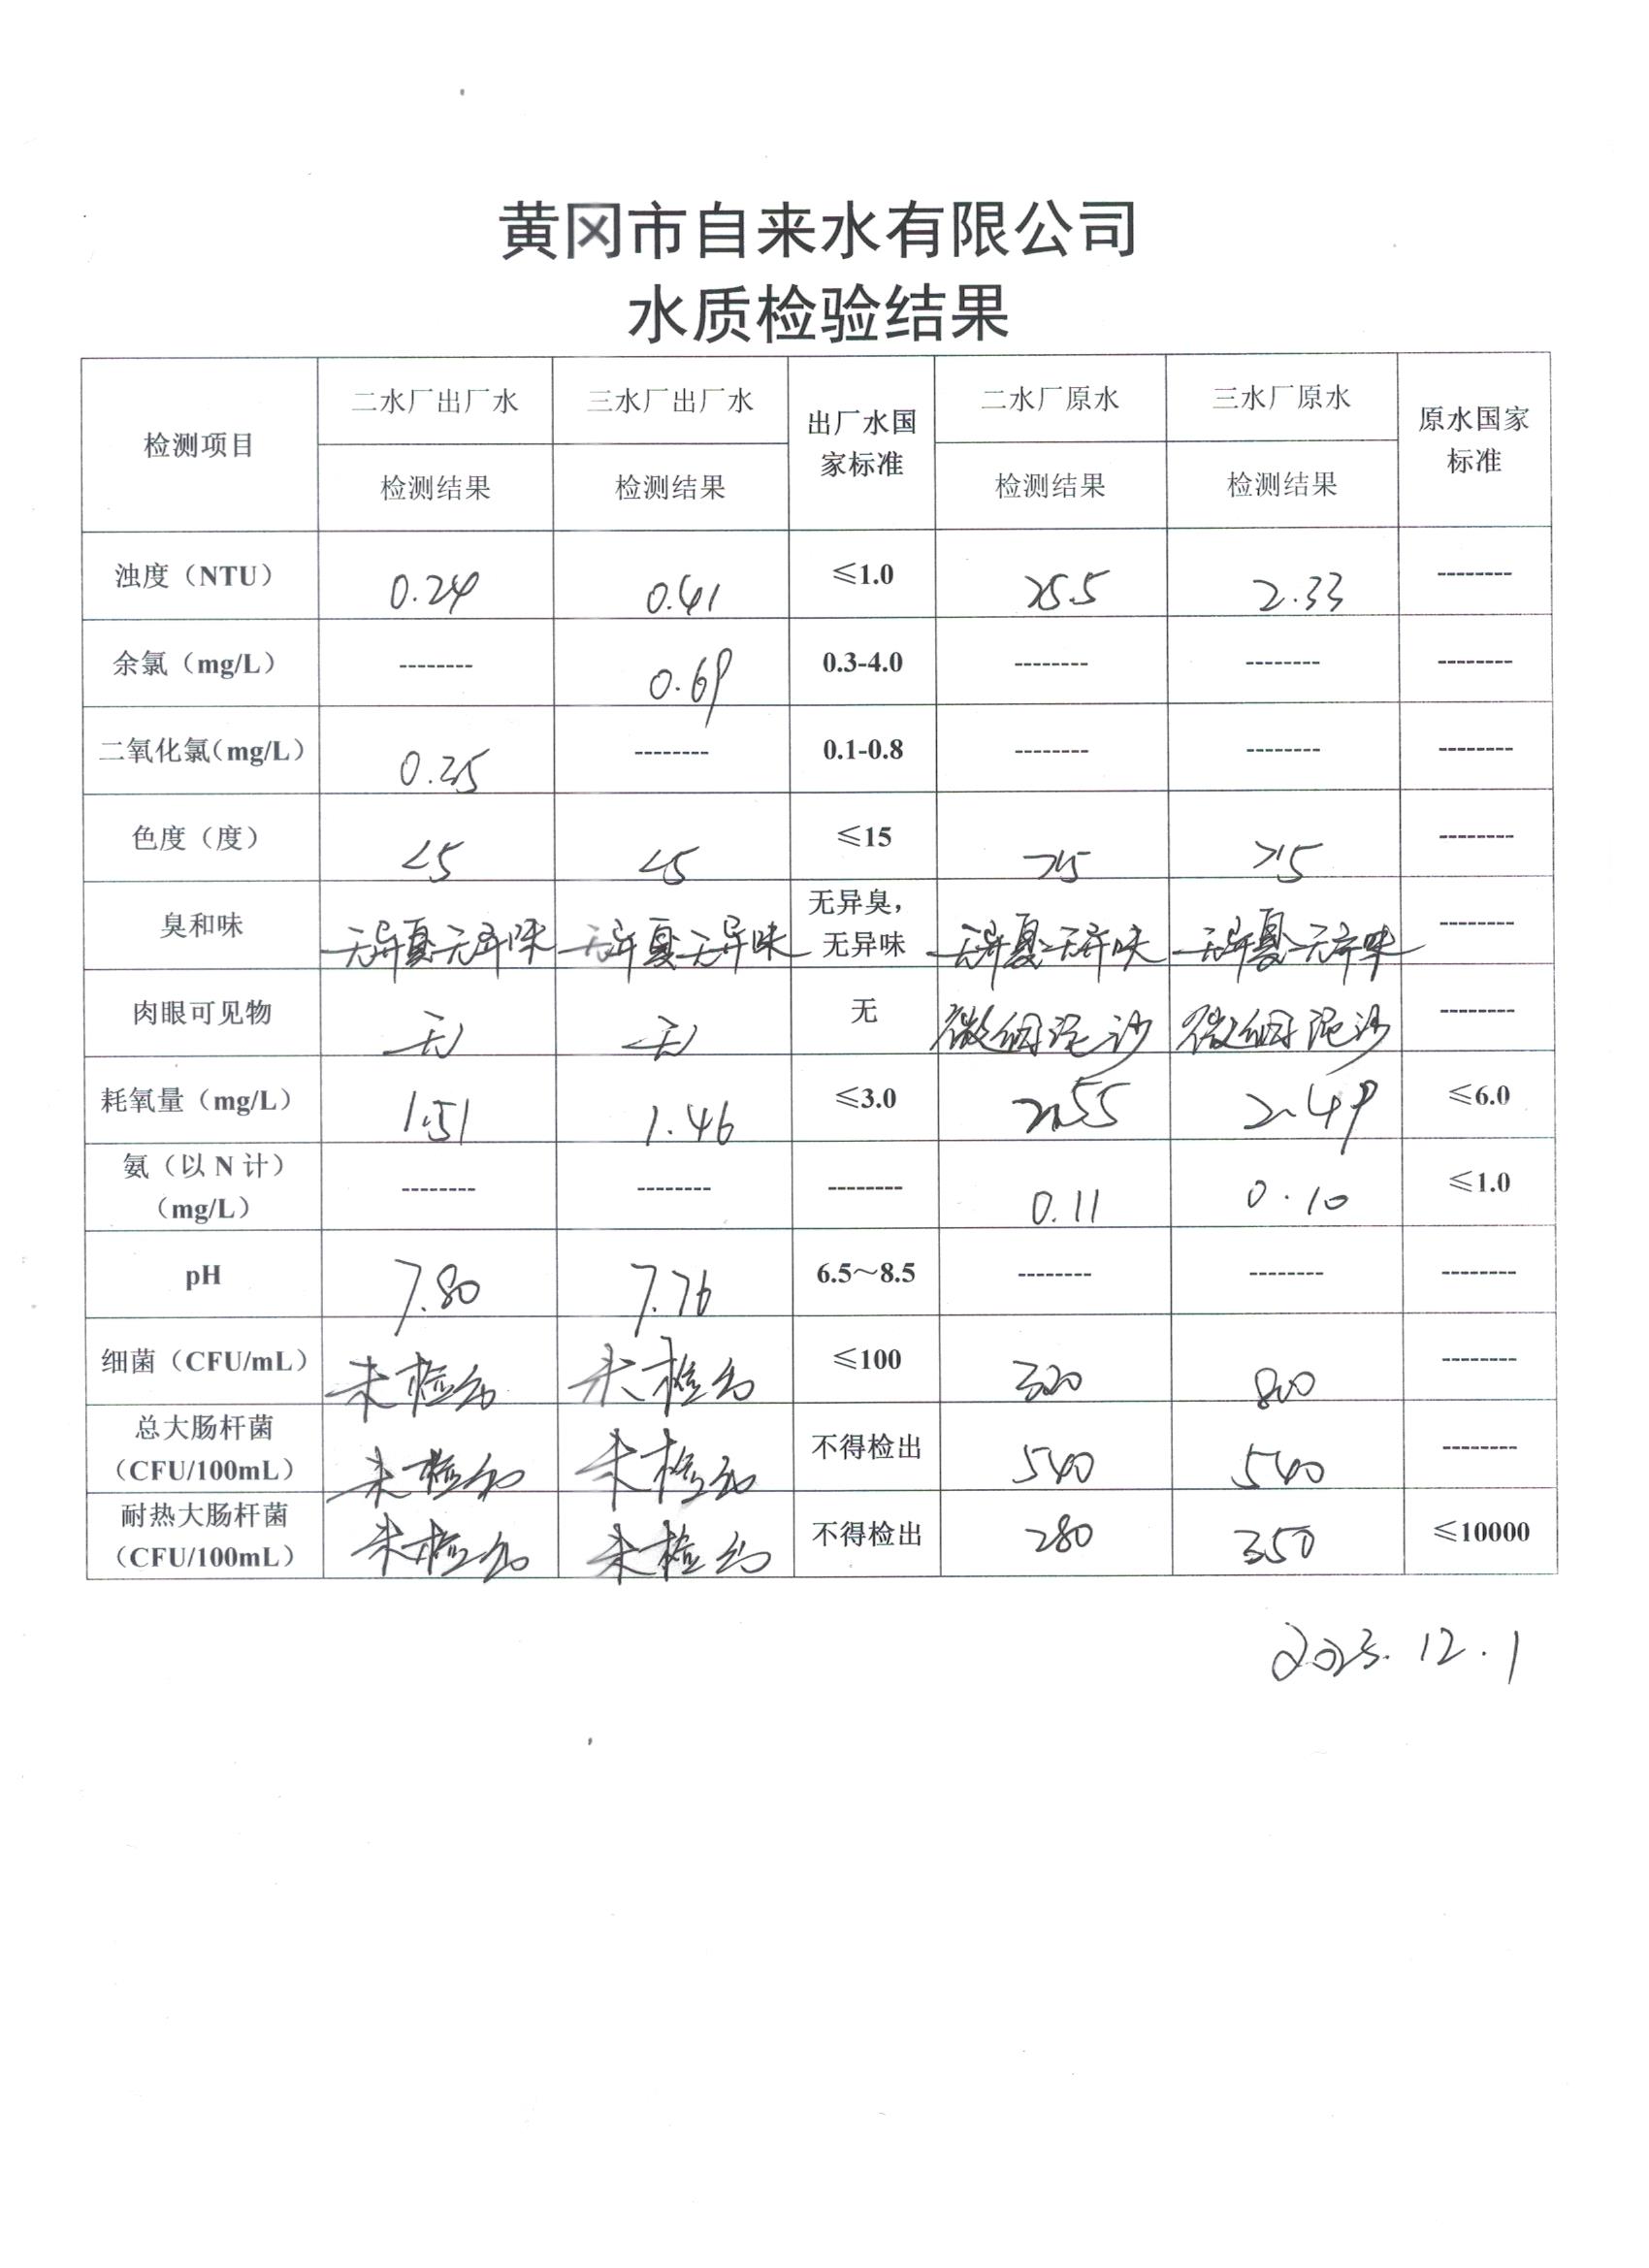 黄冈市自来水有限公司
水质检验结果
检测项目 二水厂出厂水 三水厂出厂水 出厂水国家标准 二水厂原水 三水厂原水 原水国家标准
检测结果 检测结果 检测结果 检测结果
浊度（NTU） 0.24 0.41 ≤1.0 25.5 2.33 --------
余氯（mg/L） -------- 0.69 0.3-4.0 -------- -------- --------
二氧化氯（mg/L） 0.35 -------- 0.1-0.8 -------- -------- --------
色度（度） <5 <5 ≤15 >15 >15 --------
臭和味 无异臭无异味 无异臭无异味 无异臭，无异味 无异臭无异味 无异臭无异味 --------
肉眼可见物 无 无 无 微细泥沙 微细泥沙 --------
耗氧量（mg/L） 1.51 1.46 ≤3.0 2.55 2.49 ≤6.0
氨（以 N 计）（mg/L） -------- -------- -------- 0.11 0.10 ≤1.0
pH 7.80 7.76 6.5～8.5 -------- -------- --------
细菌（CFU/mL） 未检出 未检出 ≤100 320 800 --------
总大肠杆菌（CFU/100mL） 未检出 未检出 不得检出 540 540 --------
耐热大肠杆菌（CFU/100mL） 未检出 未检出 不得检出 280 350 ≤10000
2023.12.1